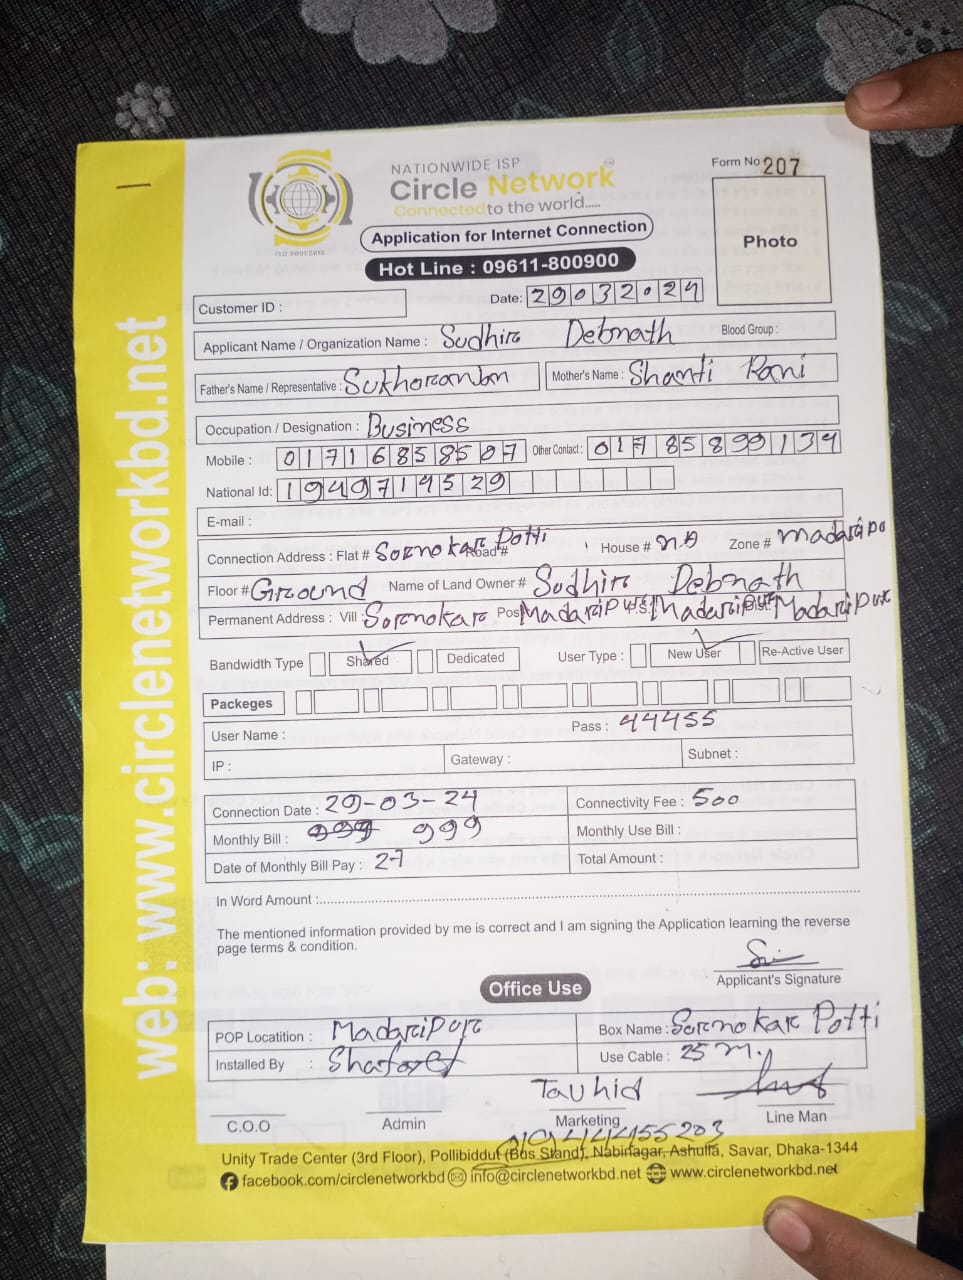 NATIONWIDE ISP
Circle Network™
Connected to the world.....
ISO 9001:2015
Form No 207
Photo
Application for Internet Connection
Hot Line : 09611-800900
Customer ID :
Date: 29032024
Applicant Name / Organization Name : Sudhir Debnath Blood Group :
Father's Name / Representative : Mother's Name : Shanti Rani
Occupation / Designation : Business
Mobile : 01716858587 Other Contact : 01785899134
National Id: 1949714529
E-mail :
Connection Address : Flat # Sornokar Potti Road # House # n.a Zone # Madaripo
Floor # Ground Name of Land Owner # Sudhir Debnath
Permanent Address : Vill : Sornokar Pos Madaripur P.S. Madaripur Dist. Madaripur
Bandwidth Type Shared Dedicated User Type : New User Re-Active User
Packeges
User Name : Pass : 44455
IP : Gateway : Subnet :
Connection Date : 29-03-24 Connectivity Fee : 500
Monthly Bill : 999 Monthly Use Bill :
Date of Monthly Bill Pay : 27 Total Amount :
In Word Amount :
The mentioned information provided by me is correct and I am signing the Application learning the reverse
page terms & condition.
Applicant's Signature
Office Use
POP Locatition : Madaripur Box Name : Sornokar Potti
Installed By : Use Cable : 25 m.
Tauhid
C.O.O Admin Marketing Line Man
01944455203
Unity Trade Center (3rd Floor), Pollibiddut (Bus Stand), Nabinagar, Ashulia, Savar, Dhaka-1344
facebook.com/circlenetworkbd info@circlenetworkbd.net www.circlenetworkbd.net
web: www.circlenetworkbd.net